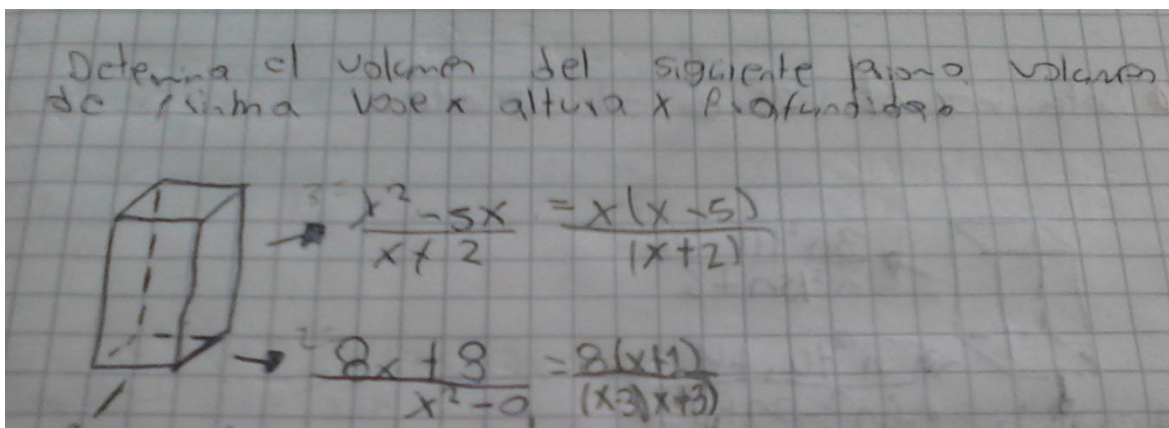 Determina el volumen del siguiente volumen
de base x altura x Profundidad
x² - 5x / x + 2 = x(x - 5) / (x + 2)
8x + 8 / x² - 9 = 8(x+1) / (x-3)(x+3)